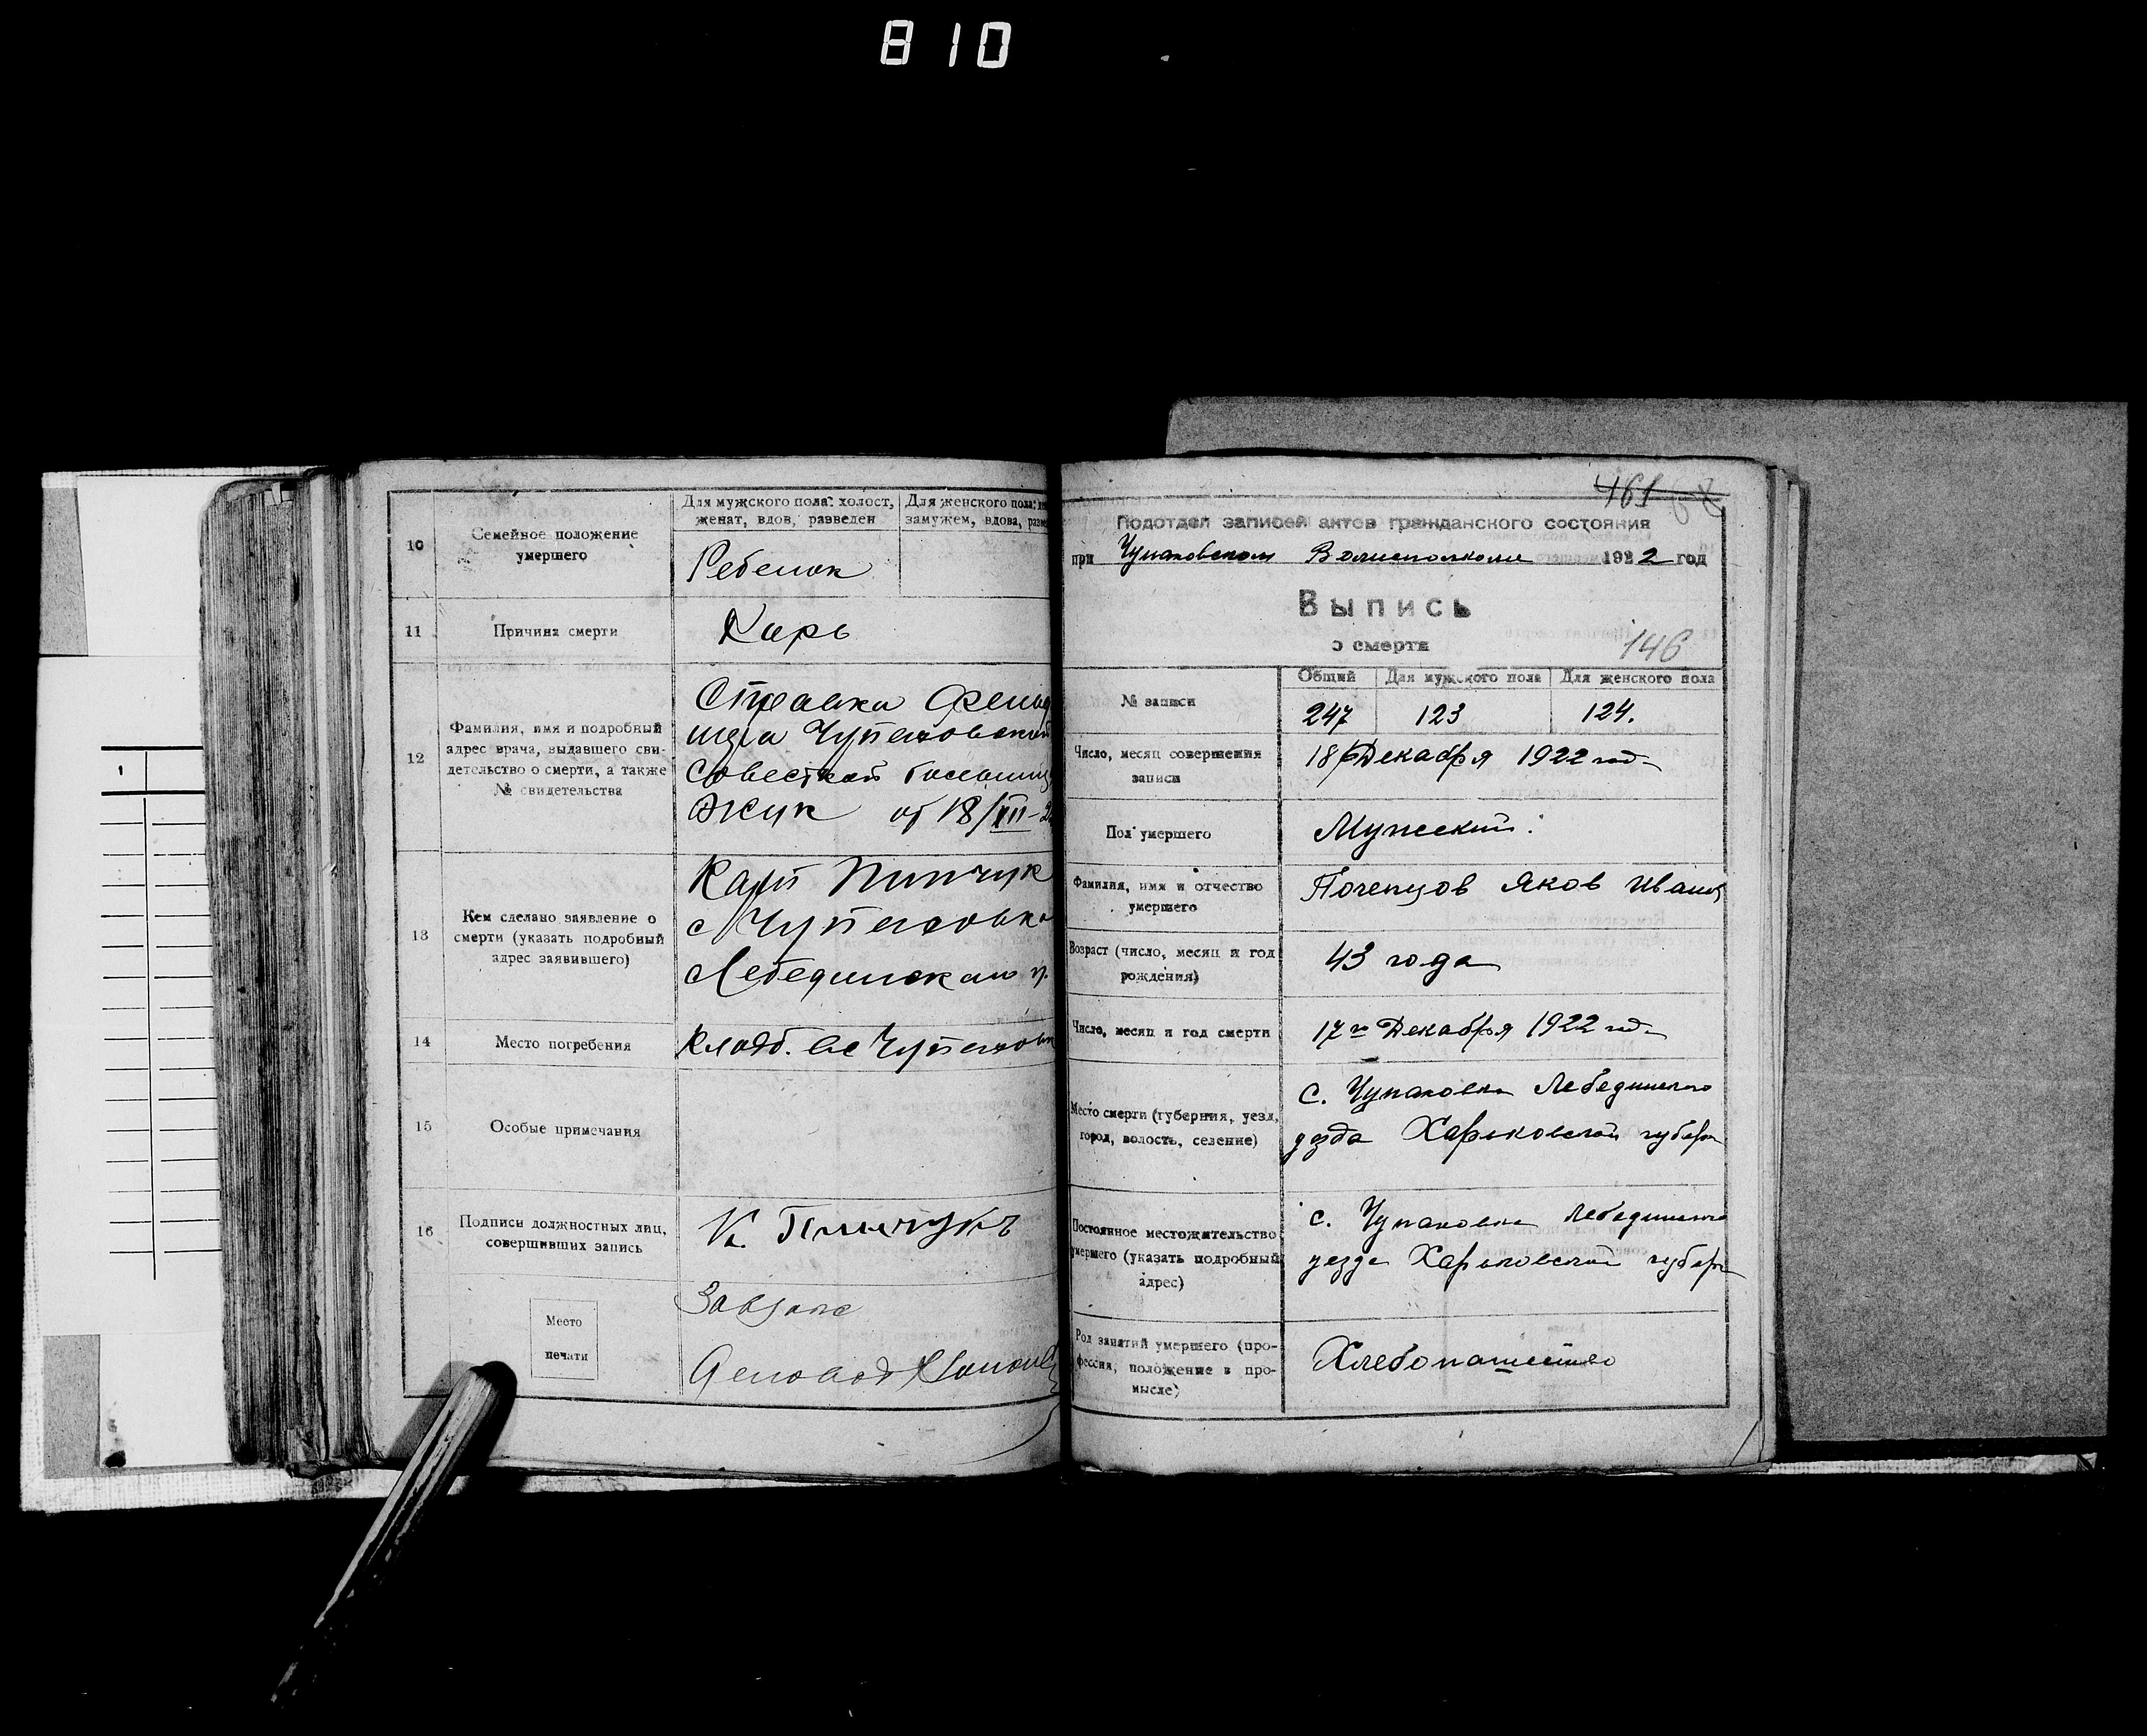 810
10
Семейное положение
умершего
Для мужского пола: холост,
женат, вдов, разведен
Для женского пола:
замужем, вдова,
Ребенок
11
Причина смерти
Корь
12
Фамилия, имя и подробный
адрес врача, выдавшего сви-
детельство о смерти, а также
№ свидетельства
Справка
Чупаховской
Советской
Жук от 18/XII-2
13
Кем сделано заявление о
смерти (указать подробный
адрес заявившего)
Карп Пинчук
с Чупаховка
Лебединскаго у.
14
Место погребения
Кладб. Чупаховк
15
Особые примечания
16
Подписи должностных лиц,
совершивших запись
К. Пинчукъ
Место
печати
Завзагс
461
Подотдел записей актов гражданского состояния
при Чупаховском Волисполкоме 1922 год
Выпись
о смерти
146
№ записи
Общий
Для мужского пола
Для женского пола
247
123
124.
Число, месяц совершения
записи
18 Декабря 1922 год
Пол умершего
Мужеский.
Фамилия, имя и отчество
умершего
Почепцов Яков Иван
Возраст (число, месяц и год
рождения)
43 года
Число, месяц и год смерти
17го Декабря 1922 год
Место смерти (губерния, уезд,
город, волость, селение)
с. Чупаховка Лебединского
уезда Харьковской губерн
Постоянное местожительство
умершего (указать подробный
адрес)
с. Чупаховка Лебединского
уезда Харьковской губерн
Род занятий умершего (про-
фессия, положение в про-
мысле)
Хлебопашество